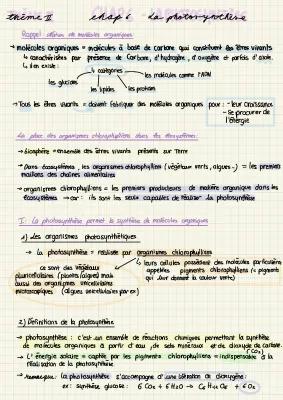 thème II chap 6 : La photosynthèse
Rappel : notion de molécules organiques
→ molécules organiques = molécules à base de carbone qui constituent les êtres vivants
↳ caractérisées par présence de Carbone, d'hydrogène, d'oxygène et parfois d'azote.
↳ il en existe :
4 catégories
les glucides les lipides les protéines les molécules comme l'ADN
→ Tous les êtres vivants = doivent fabriquer des molécules organiques pour : - leur croissance
- se procurer de l'énergie
La place des organismes chlorophylliens dans les écosystèmes :
→ biosphère = ensemble des êtres vivants présents sur Terre
→ Dans écosystèmes, les organismes chlorophylliens (végétaux verts, algues..) = les premiers
maillons des chaînes alimentaires
→ organismes chlorophylliens = les premiers producteurs de matière organique dans les
écosystèmes → car : ils sont les seuls capables de réaliser la photosynthèse
I: La photosynthèse permet la synthèse de molécules organiques
1) Les organismes photosynthétiques
→ La photosynthèse = réalisée par organismes chlorophylliens
ce sont des végétaux
pluricellulaires (plantes, algues) mais
aussi des organismes unicellulaires
microscopiques (algues unicellulaires par ex)
↳ leurs cellules possèdent des molécules particulières
appelées pigments chlorophylliens (= pigments
qui leur donnent la couleur verte)
2) Définitions de la photosynthèse
→ photosynthèse : c'est un ensemble de réactions chimiques permettant la synthèse
de molécules organiques à partir d'eau, de sels minéraux et de dioxyde de carbone.
(CO2)
→ L'énergie solaire = captée par les pigments chlorophylliens = indispensable à la
réalisation de la photosynthèse
→ remarque : la photosynthèse s'accompagne d'une libération de dioxygène :
ex: synthèse glucose : 6 CO2 + 6 H2O → C6H12O6 + 6 O2